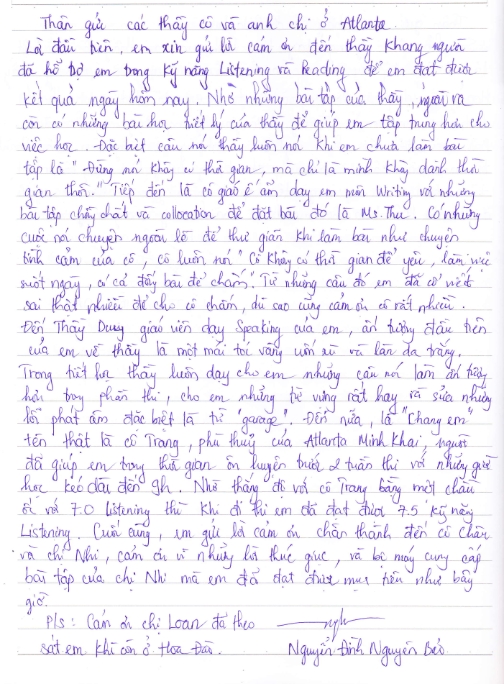 Thân gửi các thầy cô và anh chị ở Atlanta
Lời đầu tiên, em xin gửi lời cám ơn đến thầy Khang người
đã hỗ trợ em trong kỹ năng Listening và Reading để em đạt được
kết quả ngày hôm nay. Nhờ những bài tập của thầy, ngoài ra
còn có những bài học triết lý của thầy để giúp em tập trung hơn cho
việc học. Đặc biệt câu nói thầy luôn nói khi em chưa làm bài
tập là "Đừng nói không có thời gian, mà chỉ là mình không dành thời
gian thôi." Tiếp đến là cô giáo ế ẩm dạy em môn Writing với những
bài tập chồng chất và collocation để đặt bài đó là Ms. Thu. Có những
cuộc nói chuyện ngoài lề để thư giãn khi làm bài như chuyện
tình cảm của cô, cô luôn nói "Cô không có thời gian để yêu, làm việc
suốt ngày, có cả đống bài để chấm." Từ những câu đó em đã cố viết
sai thật nhiều để cho cô chấm, dù sao cũng cảm ơn cô rất nhiều.
Đến Thầy Duy giáo viên dạy Speaking của em, ấn tượng đầu tiên
của em về thầy là một mái tóc vàng uốn xù và làn da trắng.
Trong tiết học thầy luôn dạy cho em những câu nói làm ấn tượng
hơn trong phần thi, cho em những từ vựng rất hay và sửa những
lỗi phát âm đặc biệt là từ "garage". Đến nữa, là "Chang em"
tên thật là cô Trang, phù thủy của Atlanta Minh Khai, người
đã giúp em trong thời gian ôn luyện trước 2 tuần thi với những giờ
học kéo dài đến 9h. Nhờ thắng độ với cô Trang bằng một chầu
ốc với 7.0 Listening thì khi đi thi em đã đạt được 7.5 kỹ năng
Listening. Cuối cùng, em gửi lời cám ơn chân thành đến cô Châu
và chị Nhi, cám ơn vì những lời thúc giục, và bộ máy cung cấp
bài tập của chị Nhi mà em đã đạt được mục tiêu như bây
giờ.
P/s: Cám ơn chị Loan đã theo
sát em khi còn ở Hoa Đào.
Nguyễn Đình Nguyên Bảo